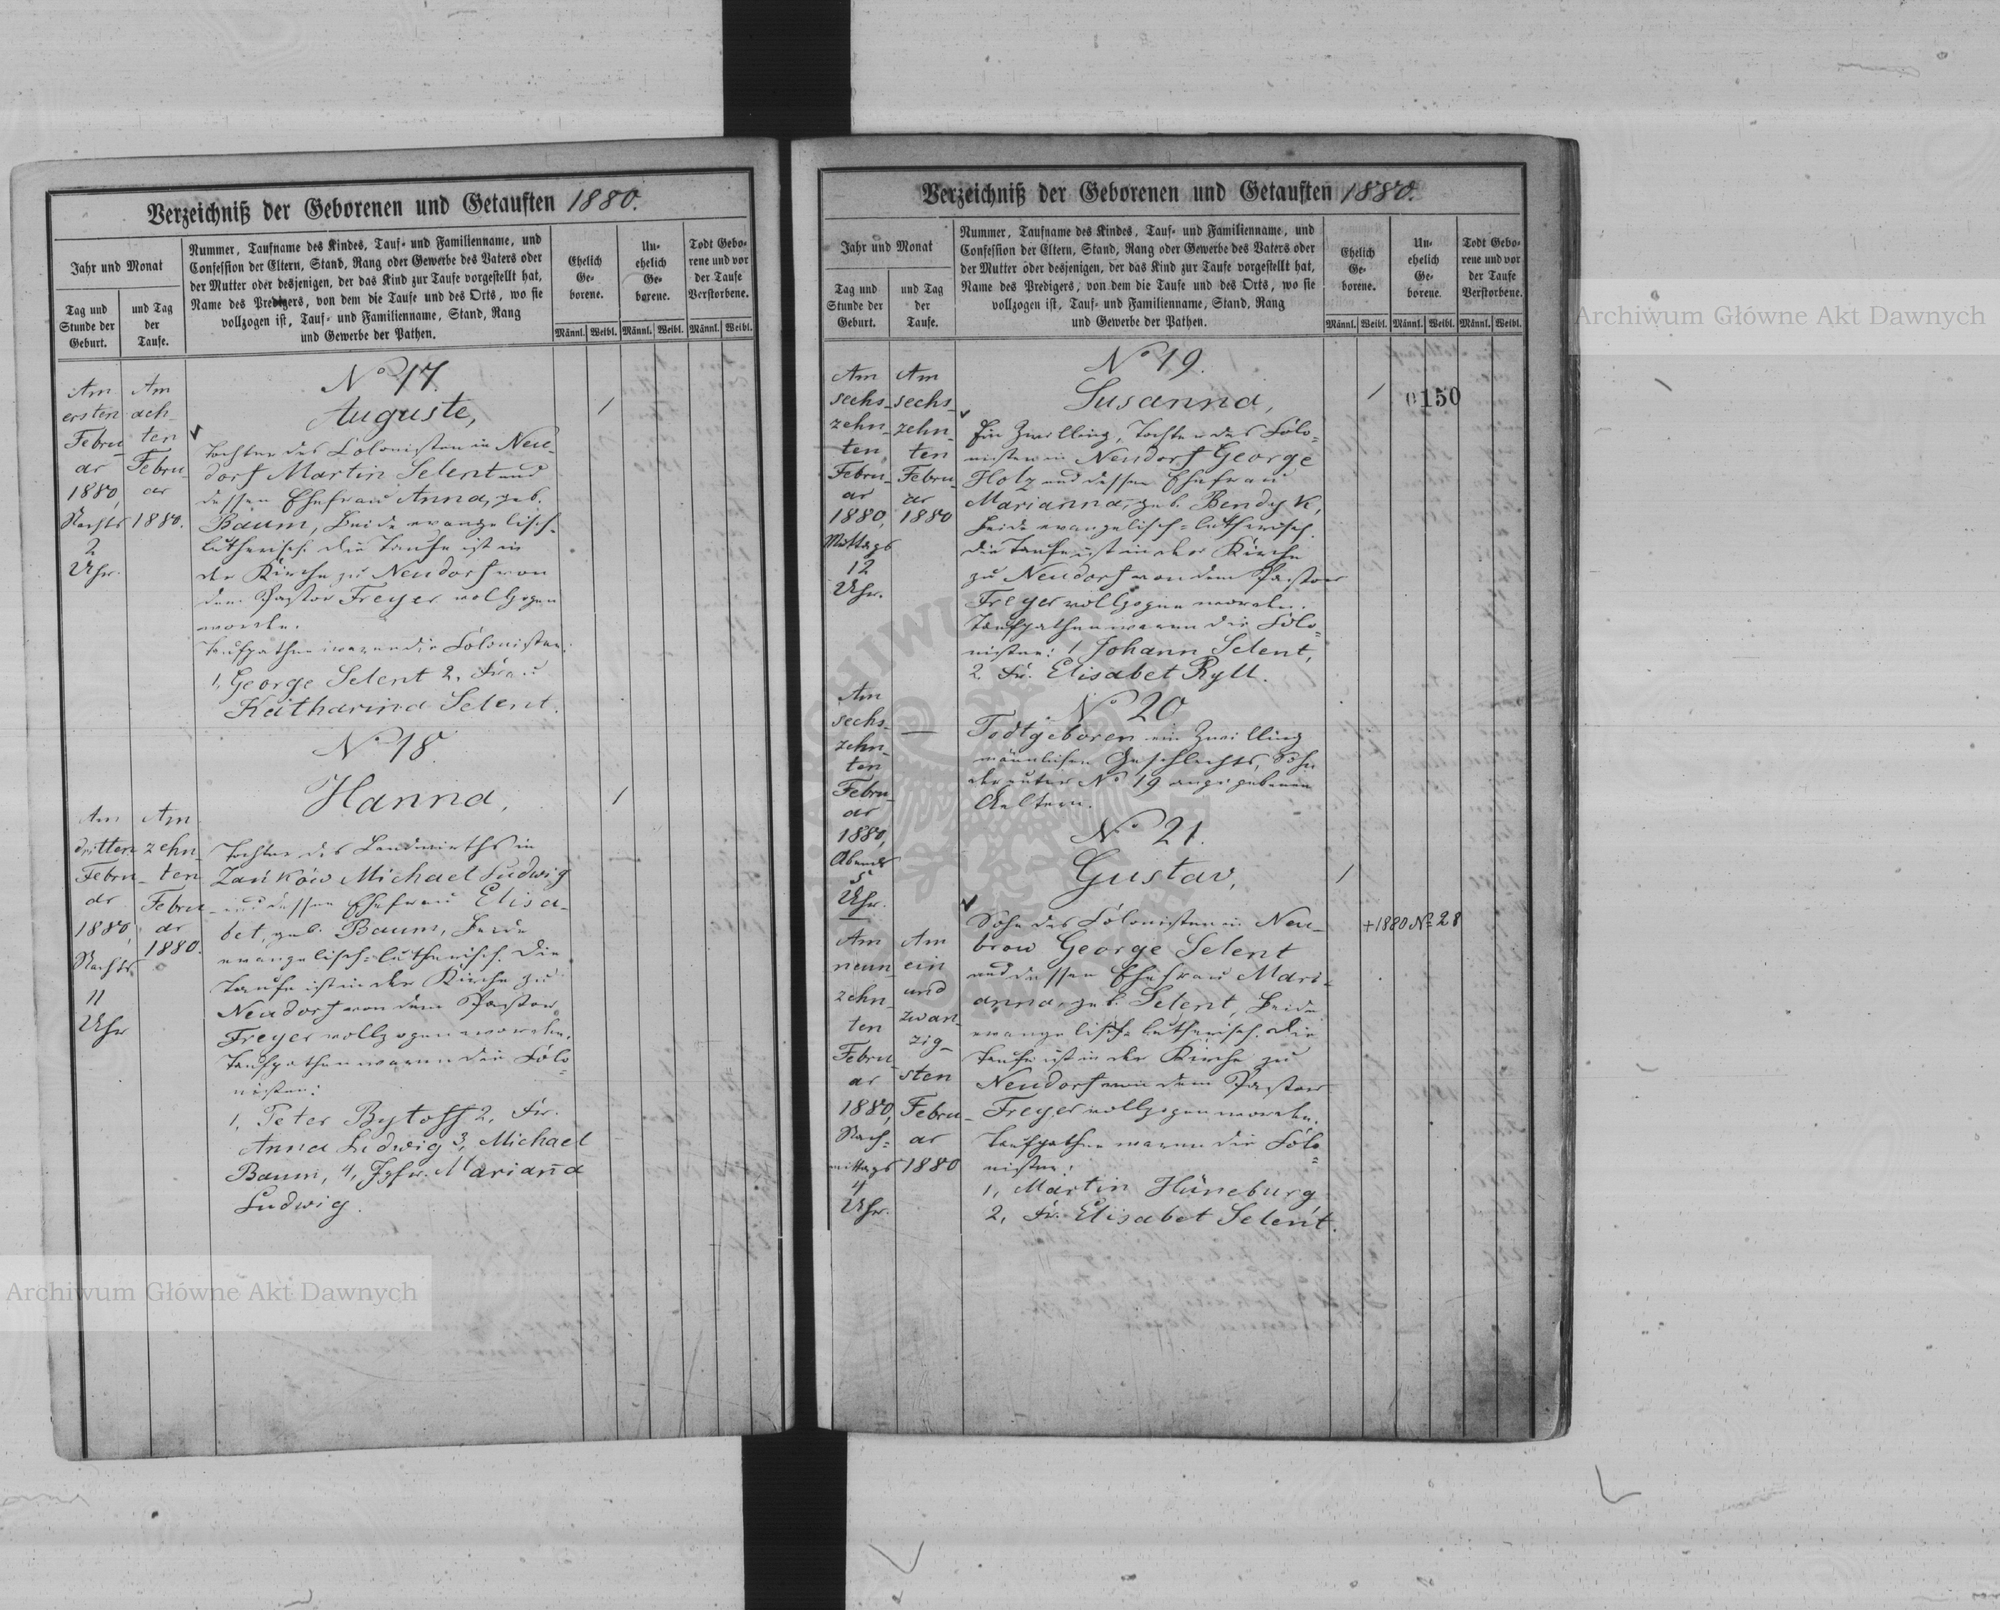 Verzeichniß der Geborenen und Getauften 1880.
Jahr und Monat
Tag und
Stunde der
Geburt.
und Tag
der
Taufe.
Nummer, Taufname des Kindes, Tauf- und Familienname, und
Confession der Eltern, Stand, Rang oder Gewerbe des Vaters oder
der Mutter oder desjenigen, der das Kind zur Taufe vorgestellt hat,
Name des Predigers, von dem die Taufe und des Orts, wo sie
vollzogen ist, Tauf- und Familienname, Stand, Rang
und Gewerbe der Pathen.
Ehelich
Ge-
borene.
Un-
ehelich
Ge-
borene.
Todt Gebo-
rene und vor
der Taufe
Verstorbene.
Männl. Weibl. Männl. Weibl. Männl. Weibl.
Am
ersten
Febru-
ar
1880,
Nachts
2
Uhr.
Am
ach-
ten
Febru-
ar
1880.
No 17.
Auguste,
1
Tochter des Colonisten in Neu-
dorf Martin Selent und
dessen Ehefrau Anna, geb.
Baum, beide evangelisch-
lutherisch. Die Taufe ist in
der Kirche zu Neudorf von
dem Pastor Freyer vollzogen
worden.
Taufpathen waren die Colonisten:
1, George Selent 2, Frau
Katharina Selent.
Am
dritten
Febru-
ar
1880,
Nachts
11
Uhr
Am
zehn-
ten
Febru-
ar
1880.
No 18.
Hanna,
1
Tochter des Landwirths in
Zańków Michael Ludwig
und dessen Ehefrau Elisa-
bet, geb. Baum, beide
evangelisch-lutherisch. Die
Taufe ist in der Kirche zu
Neudorf von dem Pastor
Freyer vollzogen worden.
Taufpathen waren die Colo-
nisten:
1, Peter Bytoff 2, Fr.
Anna Ludwig 3, Michael
Baum, 4, Jgfr. Marianna
Ludwig.
Verzeichniß der Geborenen und Getauften 1880.
Jahr und Monat
Tag und
Stunde der
Geburt.
und Tag
der
Taufe.
Nummer, Taufname des Kindes, Tauf- und Familienname, und
Confession der Eltern, Stand, Rang oder Gewerbe des Vaters oder
der Mutter oder desjenigen, der das Kind zur Taufe vorgestellt hat,
Name des Predigers, von dem die Taufe und des Orts, wo sie
vollzogen ist, Tauf- und Familienname, Stand, Rang
und Gewerbe der Pathen.
Ehelich
Ge-
borene.
Un-
ehelich
Ge-
borene.
Todt Gebo-
rene und vor
der Taufe
Verstorbene.
Männl. Weibl. Männl. Weibl. Männl. Weibl.
Am
sechs-
zehn-
ten
Febru-
ar
1880,
Mittags
12
Uhr.
Am
sechs-
zehn-
ten
Febru-
ar
1880
No 19.
Susanna,
1
0150
Ein Zwilling, Tochter des Colo-
nisten in Neudorf George
Holz und dessen Ehefrau
Marianna, geb. Bendyk,
beide evangelisch-lutherisch.
Die Taufe ist in der Kirche
zu Neudorf von dem Pastor
Freyer vollzogen worden.
Taufpathen waren die Colo-
nisten: 1, Johann Selent,
2. Fr. Elisabet Ryll.
Am
sechs-
zehn-
ten
Febru-
ar
1880,
Abends
5
Uhr.
No 20
Todtgeboren ein Zwilling
männlichen Geschlechts, Sohn
der unter No 19 angegebenen
Aeltern.
No 21.
Gustav,
1
Am
neun-
zehn-
ten
Febru-
ar
1880,
Nach-
mittags
4
Uhr.
Am
ein
und
zwan-
zig-
sten
Febru-
ar
1880
Sohn des Colonisten in Neu-
brow George Selent
und dessen Ehefrau Mari-
anna, geb. Selent, beide
evangelisch-lutherisch. Die
Taufe ist in der Kirche zu
Neudorf von dem Pastor
Freyer vollzogen worden.
Taufpathen waren die Colo-
nisten:
1, Martin Hüneburg
2, Fr. Elisabet Selent.
+1880 No 28
Archiwum Główne Akt Dawnych
Archiwum Główne Akt Dawnych